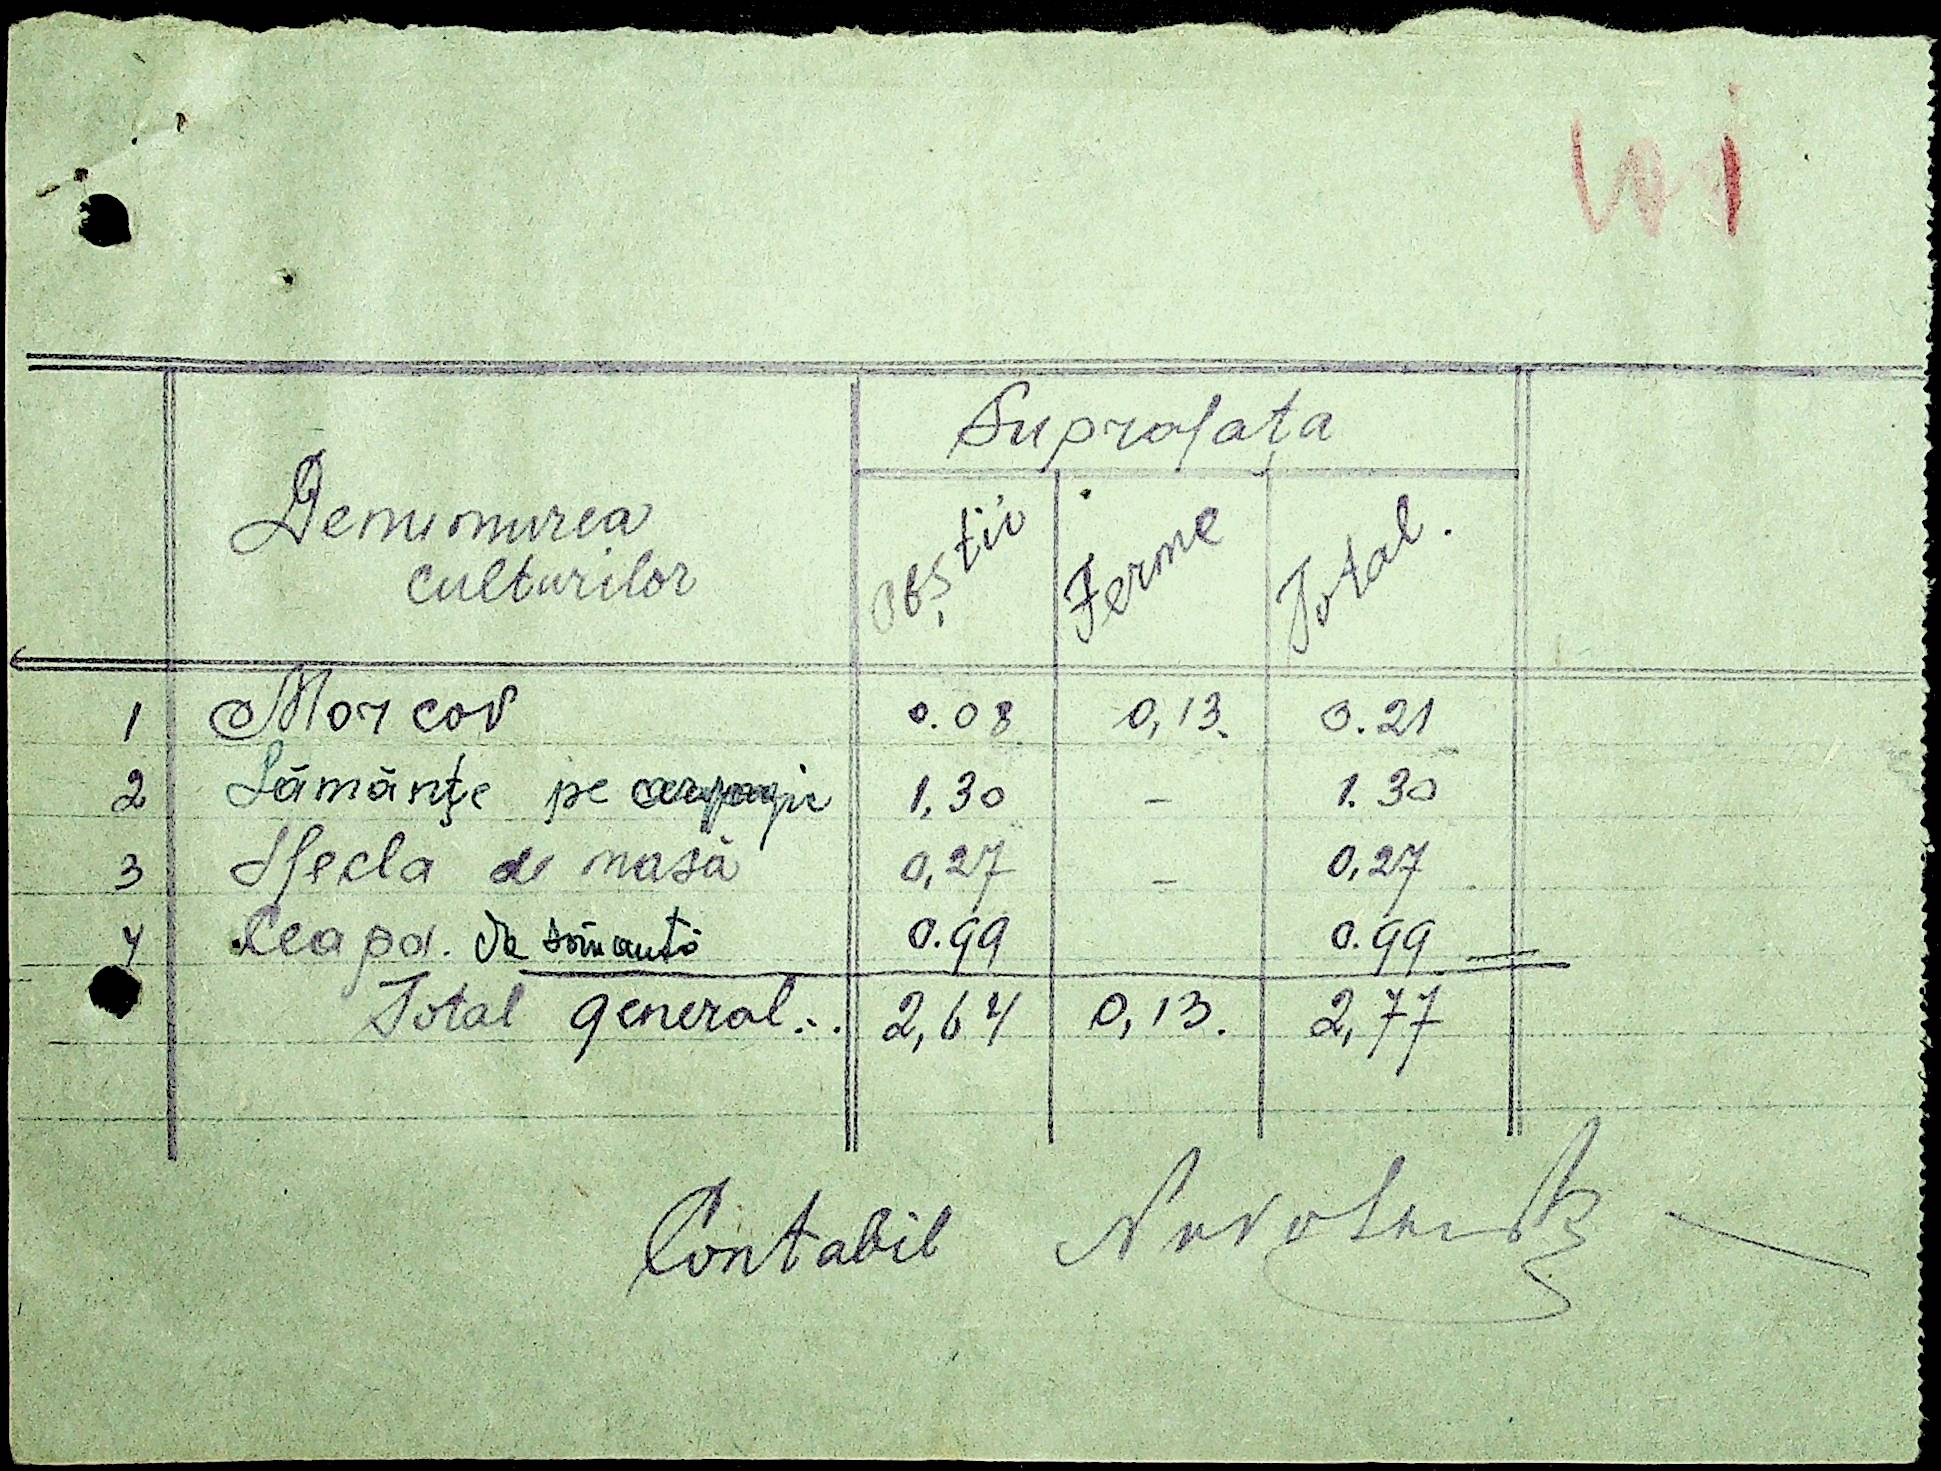 Suprafața
Denumirea
culturilor
Obștii Ferme Total.
1 Morcov 0.08 0,13. 0.21
2 Sămănțe pe arpagic 1,30 – 1.30
3 Sfecla de masă 0,27 – 0,27
4 Ceapa. de sămanță 0.99 0.99
Total general... 2,64 0,13. 2,77
Contabil